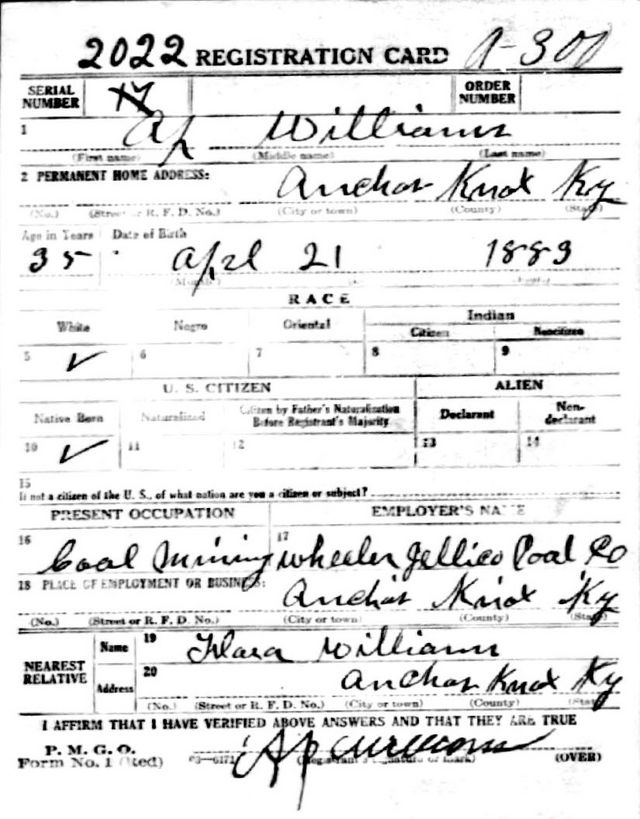 2022 REGISTRATION CARD A-301
SERIAL NUMBER 17 ORDER NUMBER
1 Ap Williams
(First name) (Middle name) (Last name)
2 PERMANENT HOME ADDRESS: Anchor Knox Ky
(No.) (Street or R. F. D. No.) (City or town) (County) (State)
Age in Years Date of Birth
35 Aprel 21 1883
RACE
White Negro Oriental Indian
Citizen Noncitizen
5 ✓ 6 7 8 9
U. S. CITIZEN ALIEN
Native Born Naturalized Citizen by Father's Naturalization Before Registrant's Majority Declarant Non-declarant
10 ✓ 11 12 13 14
15
If not a citizen of the U. S., of what nation are you a citizen or subject?
PRESENT OCCUPATION EMPLOYER'S NAME
16 Coal Mining 17 Wheeler Jellico Coal Co
18 PLACE OF EMPLOYMENT OR BUSINESS:
Anchor Knox Ky
(No.) (Street or R. F. D. No.) (City or town) (County) (State)
NEAREST RELATIVE Name 19 Flara Williams
Address 20 Anchor Knox Ky
(No.) (Street or R. F. D. No.) (City or town) (County) (State)
I AFFIRM THAT I HAVE VERIFIED ABOVE ANSWERS AND THAT THEY ARE TRUE
P. M. G. O.
Form No. 1 (Red) 03—6171 Ap Williams (Registrant's signature or mark) (OVER)